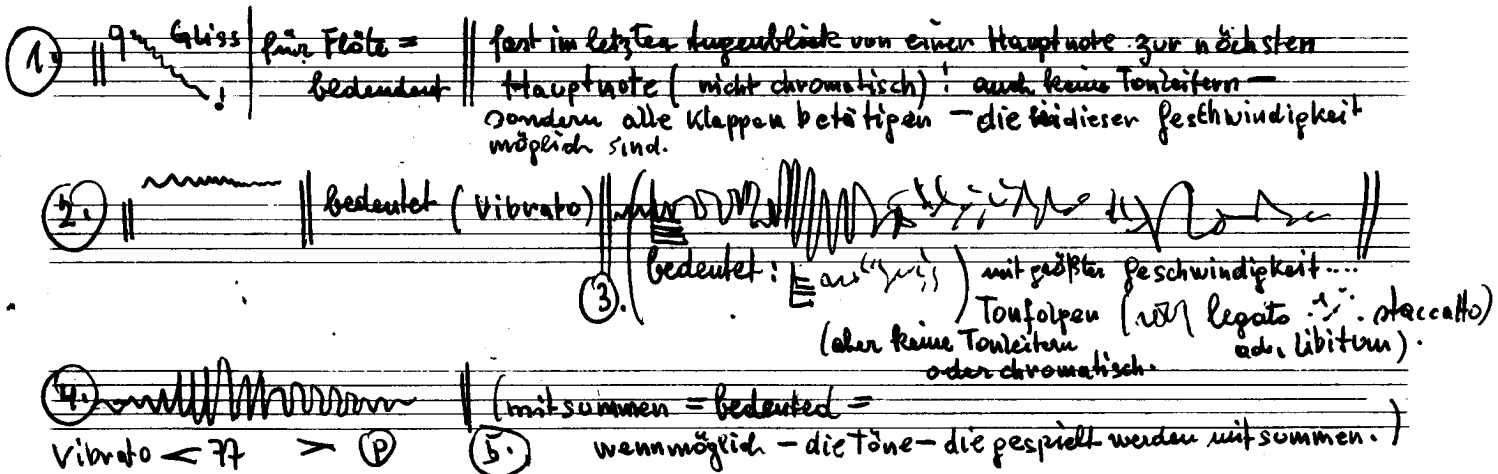 1. Gliss für Flöte = fast im letzten Augenblick von einer Hauptnote zur nächsten
bedeudent Hauptnote (nicht chromatisch)! auch keine Tonleitern –
sondern alle Klappen betätigen – die bei dieser Geschwindigkeit
möglich sind.
2. bedeutet (Vibrato)
3. (bedeutet: ) mit größter Geschwindigkeit....
Tonfolgen ( legato staccatto)
(aber keine Tonleitern ad. Libitum).
oder chromatisch.
4. (mitsummen = bedeuted =
Vibrato < > P 5. wenn möglich – die Töne – die gespielt werden mitsummen.)